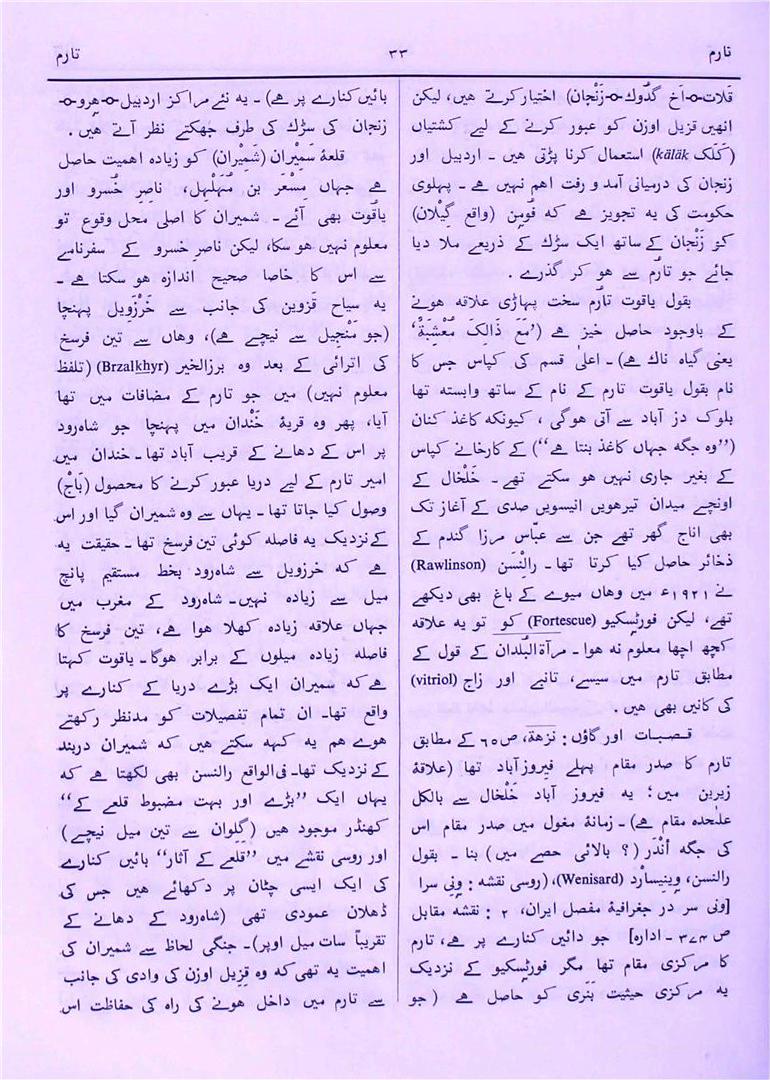 تارم ۳۳ تارم
قلات-o-اَخ گدُوک-o-زَنْجان) اختیار کرتے ھیں، لیکن
انھیں قزیل اوزن کو عبور کرنے کے لیے کشتیاں
(کَلَک kälak) استعمال کرنا پڑتی ھیں ۔ اردبیل اور
زنجان کی درمیانی آمد و رفت اھم نہیں ھے ۔ پہلوی
حکومت کی یہ تجویز ھے کہ فُومِن (واقع گِیلان)
کو زَنْجان کے ساتھ ایک سڑک کے ذریعے ملا دیا
جائے جو تارم سے ھو کر گذرے .
بقول یاقوت تارم سخت پہاڑی علاقہ ھونے
کے باوجود حاصل خیز ھے (’مَعَ ذَالِکَ مُعْشِبَةٌ‘
یعنی گیاہ ناک ھے)۔ اعلیٰ قسم کی کپاس جس کا
نام بقول یاقوت تارم کے نام کے ساتھ وابستہ تھا
بلوک دز آباد سے آتی ھوگی ، کیونکہ کاغذ کنان
(’’وہ جگہ جہاں کاغذ بنتا ھے‘‘) کے کارخانے کپاس
کے بغیر جاری نہیں ھو سکتے تھے ۔ خَلْخال کے
اونچے میدان تیرھویں انیسویں صدی کے آغاز تک
بھی اناج گھر تھے جن سے عبّاس مرزا گندم کے
ذخائر حاصل کیا کرتا تھا۔ رالِنْسَن (Rawlinson)
نے ۱۹۲۱ء میں وھاں میوے کے باغ بھی دیکھے
تھے، لیکن فورٹسکیو (Fortescue) کو تو یہ علاقہ
کچھ اچھا معلوم نہ ھوا ۔ مرآة البُلدان کے قول کے
مطابق تارم میں سیسے، تانبے اور زاج (vitriol)
کی کانیں بھی ھیں .
قصبات اور گاؤں : نزھة، ص ۶۵ کے مطابق
تارم کا صدر مقام پہلے فیروزآباد تھا (علاقۂ
زیرین میں؛ یہ فیروز آباد خَلْخال سے بالکل
علٰحدہ مقام ھے)۔ زمانۂ مغول میں صدر مقام اس
کی جگہ اَنْدَر (؟ بالائی حصے میں) بنا ۔ بقول
رالنسن، وِینیسارْد (Wenisard)، (روسی نقشہ : وِنی سرا
[ونی سر در جغرافیۂ مفصل ایران، ۲ : نقشہ مقابل
ص ۳۷۴ ۔ ادارہ] جو دائیں کنارے پر ھے، تارم
کا مرکزی مقام تھا مگر فورٹسکیو کے نزدیک
یہ مرکزی حیثیت بَنَری کو حاصل ھے (جو
بائیں کنارے پر ھے) ۔ یہ نئے مراکز اردبیل-o-ھِرو-o-
زنجان کی سڑک کی طرف جھکتے نظر آتے ھیں .
قلعۂ سَمِیْران (شَمِیْران) کو زیادہ اھمیت حاصل
ھے جہاں مِسْعَر بن مُہَلْہِل، ناصرِ خُسرو اور
یاقوت بھی آئے ۔ شمیران کا اصلی محل وقوع تو
معلوم نہیں ھو سکا، لیکن ناصر خسرو کے سفرنامے
سے اس کا خاصا صحیح اندازہ ھو سکتا ھے ۔
یہ سیاح قَزوین کی جانب سے خَرْزَویل پہنچا
(جو مَنْجِیل سے نیچے ھے)، وھاں سے تین فرسخ
کی اترائی کے بعد وہ برزالخیر (Brzalkhyr) (تلفظ
معلوم نہیں) میں جو تارم کے مضافات میں تھا
آیا، پھر وہ قریۂ خَنْدان میں پہنچا جو شاہ‌رود
پر اس کے دھانے کے قریب آباد تھا۔ خندان میں
امیرِ تارم کے لیے دریا عبور کرنے کا محصول (بَاجْ)
وصول کیا جاتا تھا ۔ یہاں سے وہ شمیران گیا اور اس
کے نزدیک یہ فاصلہ کوئی تین فرسخ تھا ۔ حقیقت یہ
ھے کہ خرزویل سے شاہ‌رود بخط مستقیم پانچ
میل سے زیادہ نہیں۔ شاہ‌رود کے مغرب میں
جہاں علاقہ زیادہ کھلا ھوا ھے، تین فرسخ کا
فاصلہ زیادہ میلوں کے برابر ھوگا۔ یاقوت کہتا
ھے کہ سمیران ایک بڑے دریا کے کنارے پر
واقع تھا۔ ان تمام تفصیلات کو مدنظر رکھتے
ھوے ھم یہ کہہ سکتے ھیں کہ شمیران دربند
کے نزدیک تھا۔ فی‌الواقع رالنسن بھی لکھتا ھے کہ
یہاں ایک ’’بڑے اور بہت مضبوط قلعے کے‘‘
کھنڈر موجود ھیں (گِلوان سے تین میل نیچے)
اور روسی نقشے میں ’’قلعے کے آثار‘‘ بائیں کنارے
کی ایک ایسی چٹان پر دکھائے ھیں جس کی
ڈھلان عمودی تھی (شاہ‌رود کے دھانے کے
تقریباً سات میل اوپر)۔ جنگی لحاظ سے شمیران کی
اھمیت یہ تھی کہ وہ قِزِیل اوزن کی وادی کی جانب
سے تارم میں داخل ھونے کی راہ کی حفاظت اس